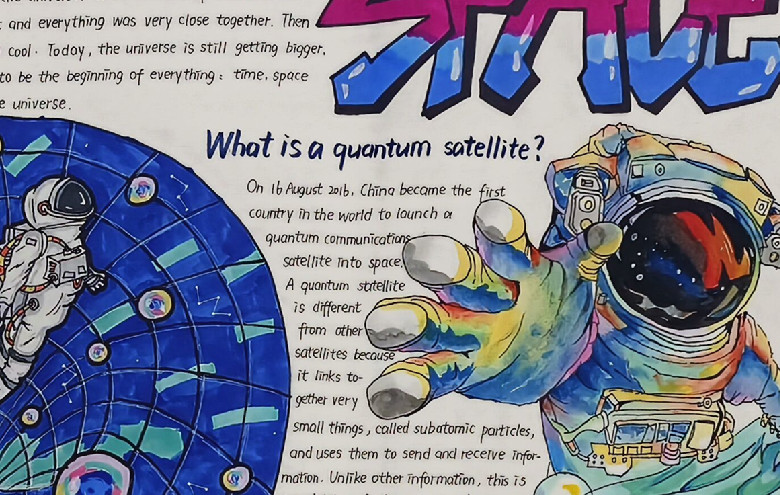 and everything was very close together. Then
cool. Today, the universe is still getting bigger,
to be the beginning of everything: time, space
universe.
SPACE
What is a quantum satellite?
On 16 August 2016, China became the first
country in the world to launch a
quantum communications
satellite into space.
A quantum satellite
is different
from other
satellites because
it links to-
gether very
small things, called subatomic particles,
and uses them to send and receive infor-
mation. Unlike other information, this is